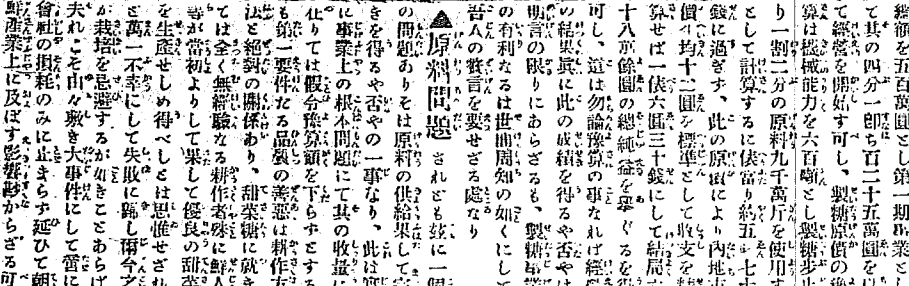 總額を五百萬圓とし第一期出業とし
て其の四分一卽ち百二十五萬圓を以
て經營を開始す可し、製糖原價の
算は機械能力を六百噸とし製糖步
り一割二分の原料九千萬斤を使用す
として計算するに俵當り約五
錢に過ぎず、此の原價により內地
價平均十二圓を標準として收支を
算せば一俵六圓三十錢にして結局
十八萬餘圓の總純益を擧ぐるを得
可し、這は勿論豫算の事なれば經
の結果眞に此の成績を得るや否やは
期言の限りにあらざるも、製糖事業
の有利なるは世間周知の如くにして
吾人の贅言を要せざる處なり
▲原料問題 されども玆に一個
の問題ありそは原料の供給果して
きを得るや否やの一事なり、此は
に事業上の根本問題にて其の收量
在りては假令豫算額を下らずとする
も第一要件たる品質の善惡は耕作方
法と絕對の關係あり、甜菜糖に就き
ては全く無經驗なる耕作者殊に鮮人
等が當初よりして果して優良の甜菜
を生產せしめ得べしとは思惟せざれ
ど萬一不幸にして失敗に歸し爾今之
が栽培を忌避するが如きことあらば
夫れこそ由々敷き大事件にして啻に
會社の損耗のみに止まらず延ひて朝
鮮產業上に及ぼす影響尠からざる可